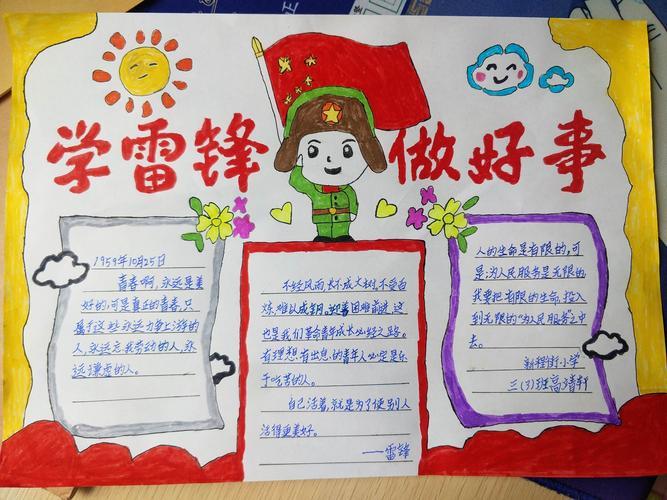 学雷锋 做好事
1959年10月25日
青春啊，永远是美
好的，可是真正的青春，只
属于这些永远力争上游的
人，永远忘我劳动的人，永
远谦虚的人。
不经风雨，长不成大树，不受百
炼，难以成钢。迎着困难前进，这
也是我们革命青年成长必经之路。
有理想有出息的青年人必定是乐
于吃苦的人。
自己活着，就是为了使别人
活得更美好。
——雷锋
人的生命是有限的，可
是，为人民服务是无限的，
我要把有限的生命，投入
到无限的“为人民服务”之中
去。
新程街小学
三（3）班高靖轩